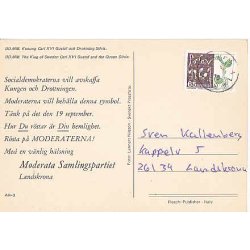 UD.MM. Konung Carl XVI Gustaf och Drottning Silvia.
UD.MM. The King of Sweden Carl XVI Gustaf and the Queen Silvia.
Socialdemokraterna vill avskaffa
Kungen och Drottningen.
Moderaterna vill behålla denna symbol.
Tänk på det den 19 september.
Hur Du röstar är Din hemlighet.
Rösta på MODERATERNA!
Med en vänlig hälsning
Moderata Samlingspartiet
Landskrona
Sven Kallenberg
Kappelv 5
26134 Landskrona